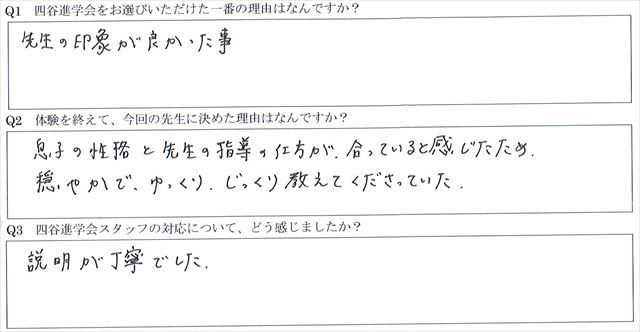 Q1 四谷進学会をお選びいただけた一番の理由はなんですか？
先生の印象が良かった事
Q2 体験を終えて、今回の先生に決めた理由はなんですか？
息子の性格と先生の指導の仕方が、合っていると感じたため、
穏やかで、ゆっくり、じっくり教えてくださっていた。
Q3 四谷進学会スタッフの対応について、どう感じましたか？
説明が丁寧でした。